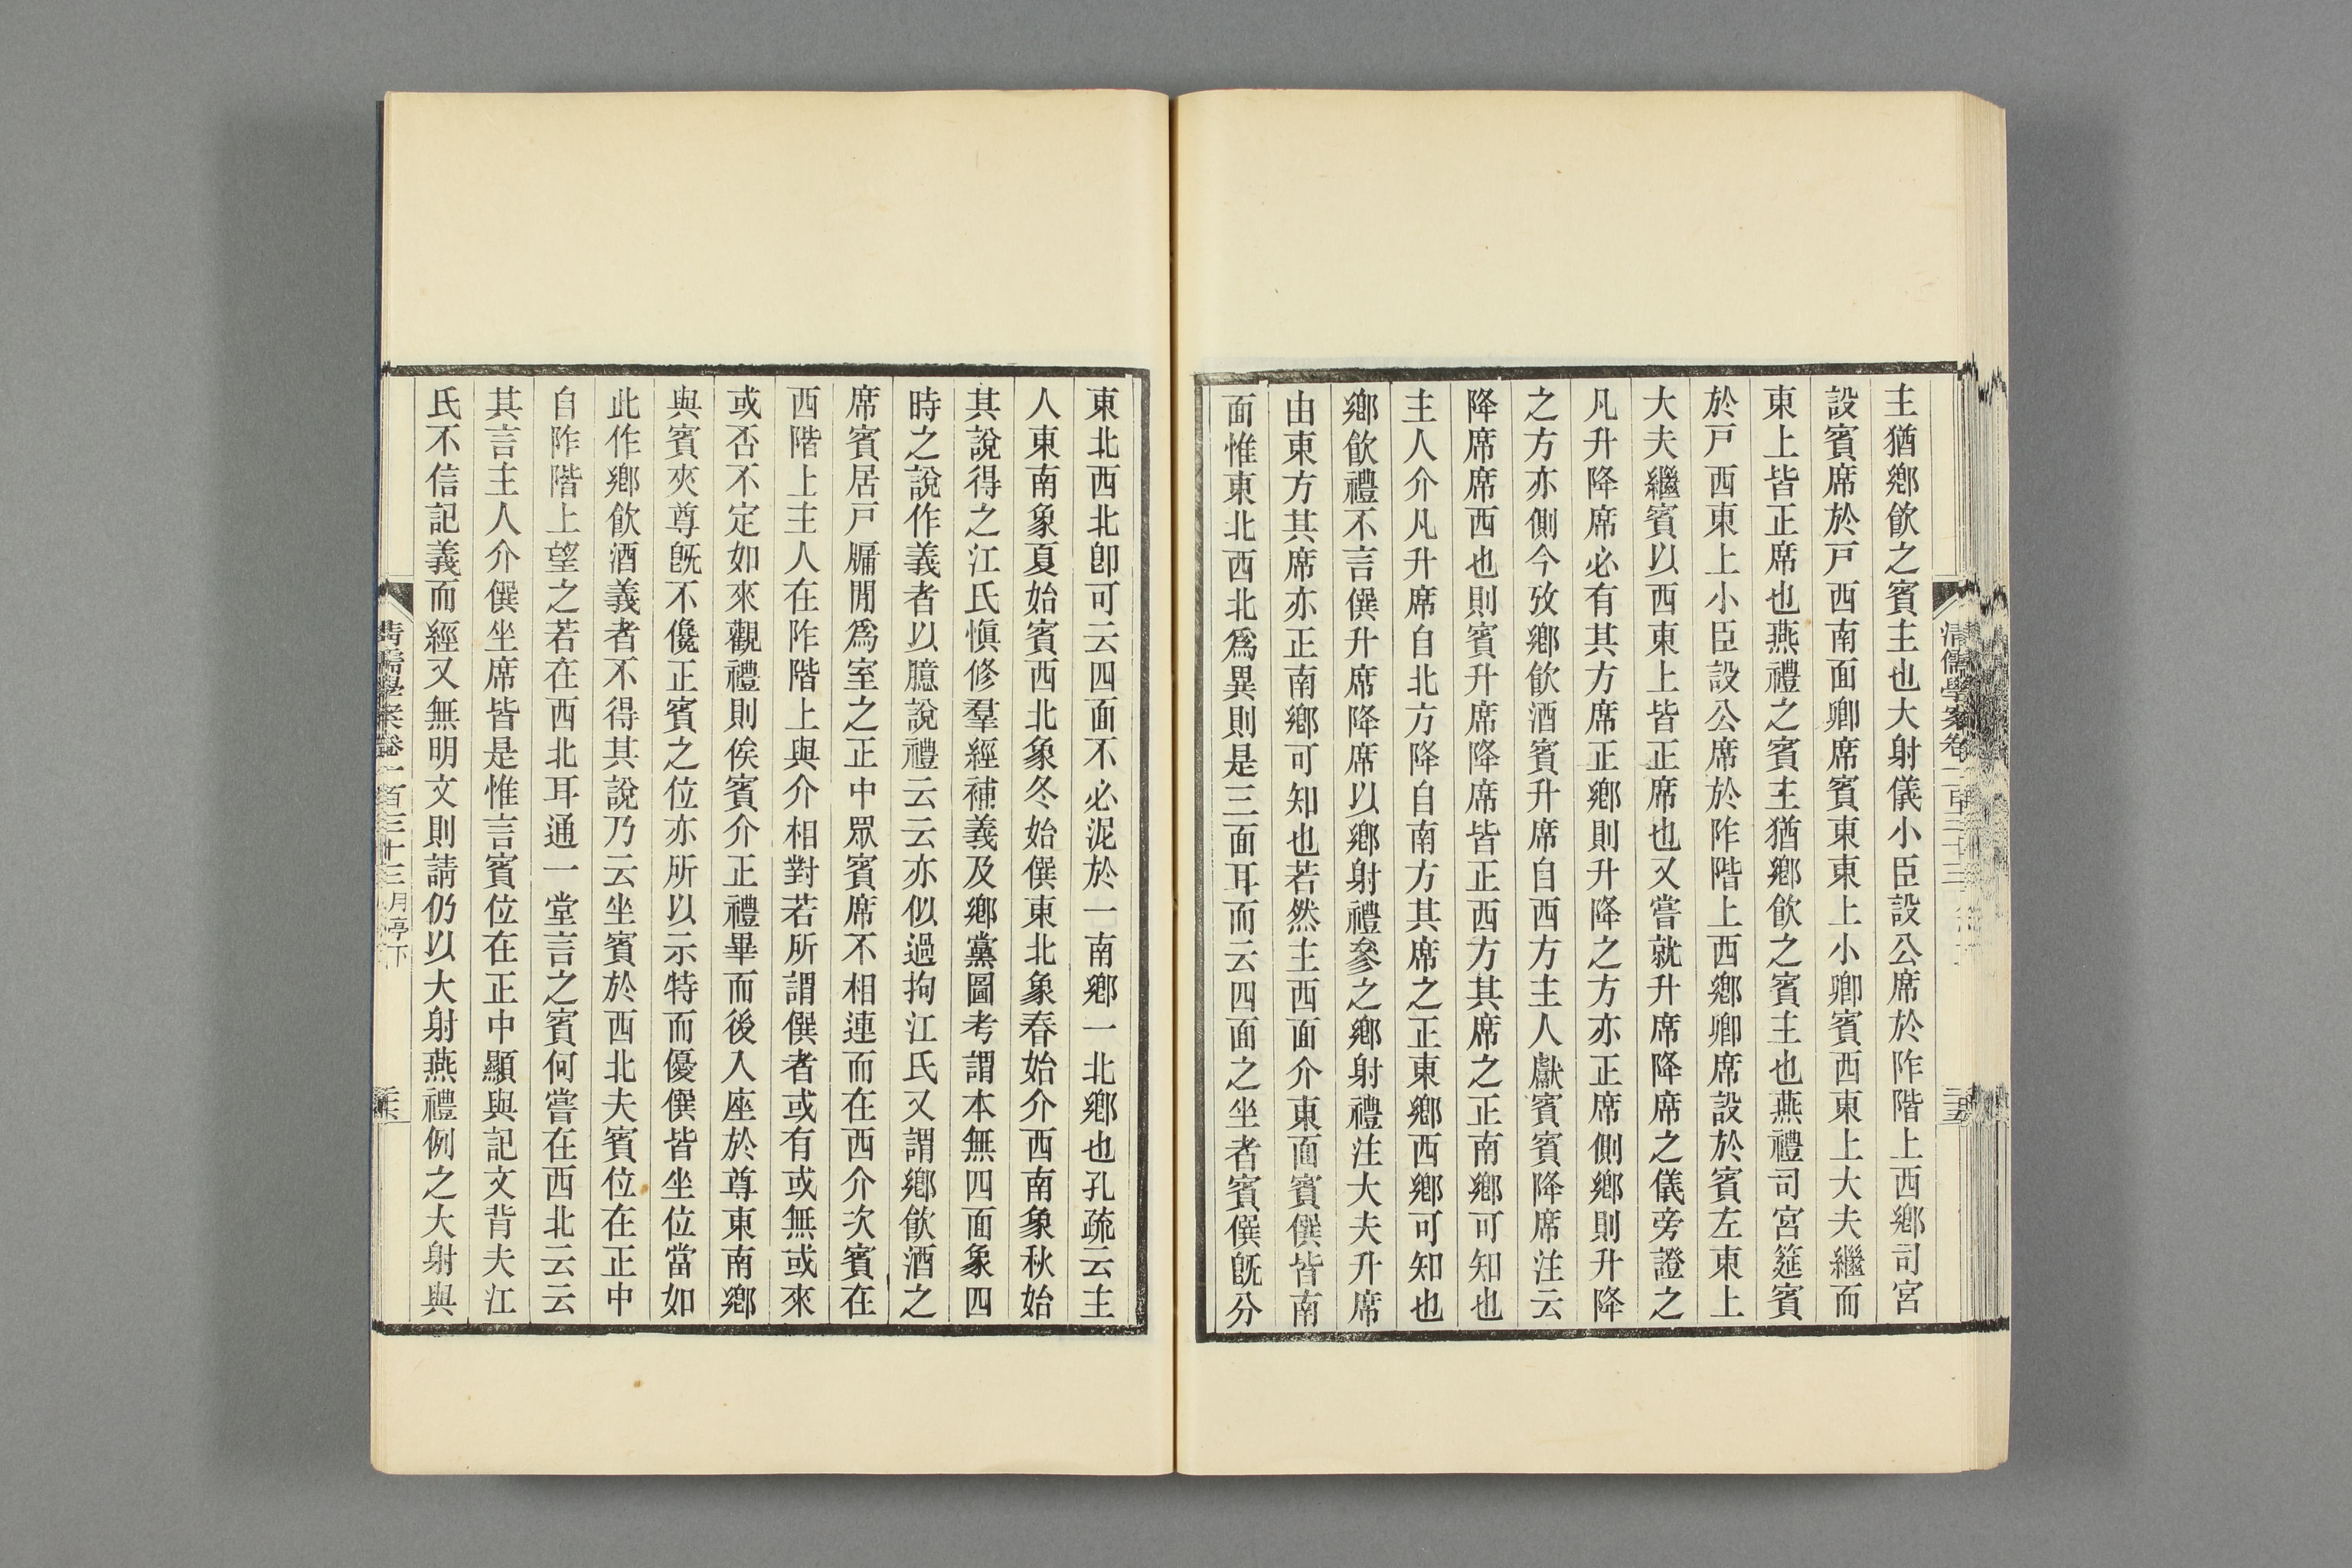 主猶鄉飲之賓主也大射儀小臣設公席於阼階上西鄉司宮
設賓席於戸西南面卿席賓東東上小卿賓西東上大夫繼而
東上皆正席也燕禮之賓主猶鄉飲之賓主也燕禮司宮筵賓
於戸西東上小臣設公席於阼階上西鄉卿席設於賓左東上
大夫繼賓以西東上皆正席也又嘗就升席降席之儀旁證之
凡升降席必有其方席正鄉則升降之方亦正席側鄉則升降
之方亦側今攷鄉飲酒賓升席自西方主人獻賓賓降席注云
降席席西也則賓升席降席皆正西方其席之正南鄉可知也
主人介凡升席自北方降自南方其席之正東鄉西鄉可知也
鄉飲禮不言僎升席降席以鄉射禮參之鄉射禮注大夫升席
由東方其席亦正南鄉可知也若然主西面介東面賓僎皆南
面惟東北西北爲異則是三面耳而云四面之坐者賓僎旣分
東北西北卽可云四面不必泥於一南鄉一北鄉也孔疏云主
人東南象夏始賓西北象冬始僎東北象春始介西南象秋始
其說得之江氏愼修羣經補義及鄉黨圖考謂本無四面象四
時之說作義者以臆說禮云云亦似過拘江氏又謂鄉飲酒之
席賓居戸牖閒爲室之正中眾賓席不相連而在西介次賓在
西階上主人在阼階上與介相對若所謂僎者或有或無或來
或否不定如來觀禮則俟賓介正禮畢而後入座於尊東南鄉
與賓夾尊旣不儳正賓之位亦所以示特而優僎皆坐位當如
此作鄉飲酒義者不得其說乃云坐賓於西北夫賓位在正中
自阼階上望之若在西北耳通一堂言之賓何嘗在西北云云
其言主人介僎坐席皆是惟言賓位在正中顯與記文背夫江
氏不信記義而經又無明文則請仍以大射燕禮例之大射與
清儒學案卷一百三十三